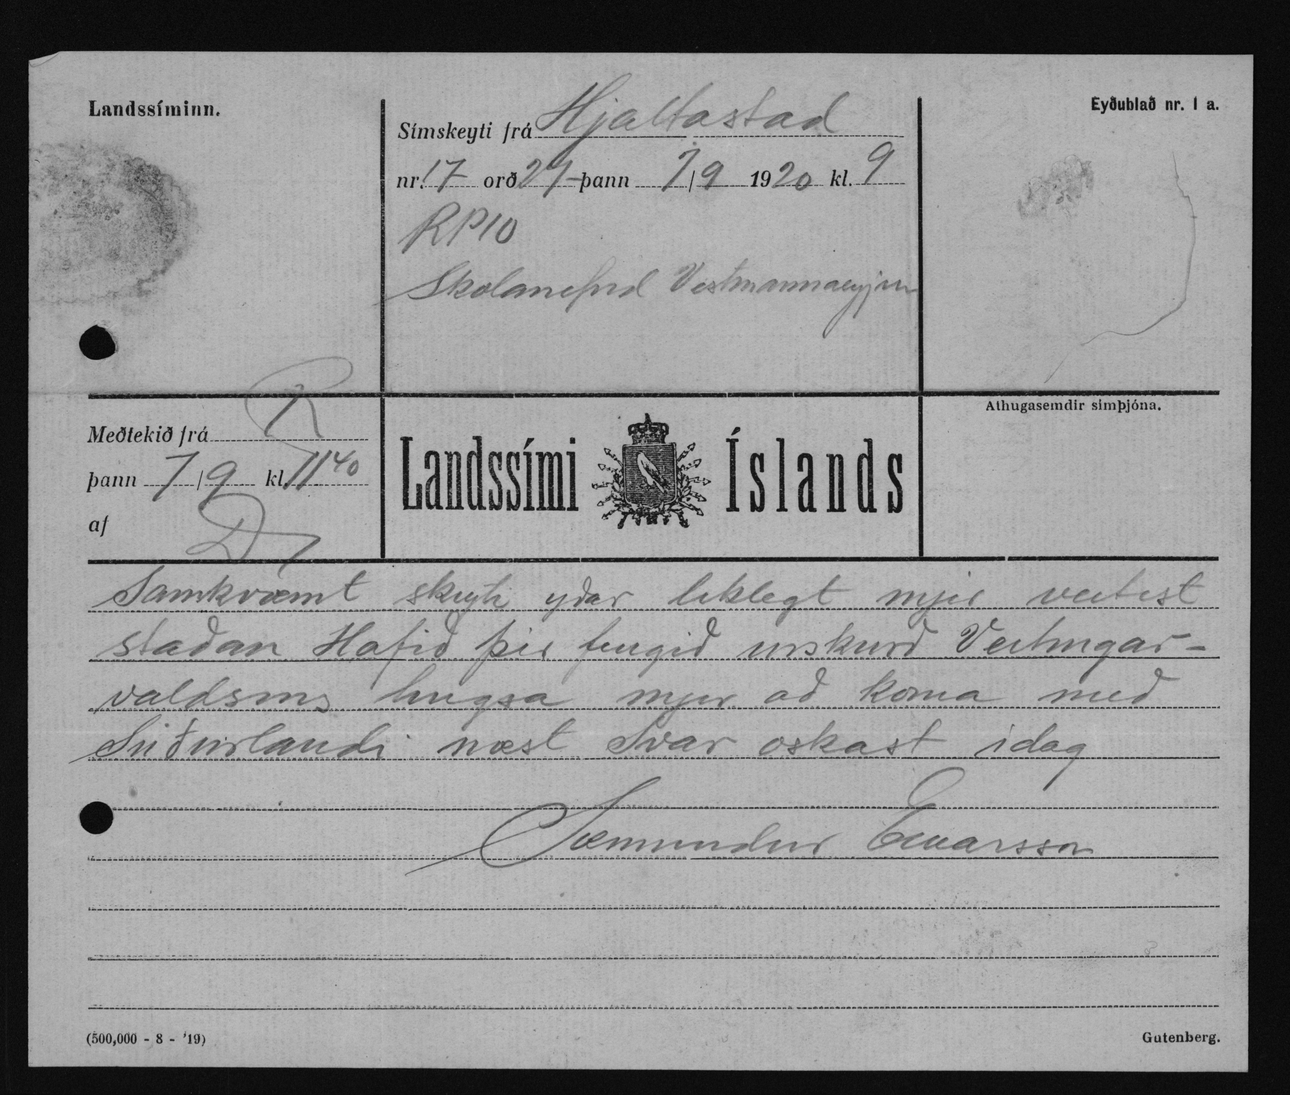 Landssíminn.
Eyðublað nr. 1 a.
Símskeyti frá Hjaltastad
nr. 17 orð 27 þann 7/9 1920 kl. 9
RP10
Skolanefnd Vestmannaeyjum
Meðtekið frá R
þann 7/9 kl. 11 40
af
Landssími Íslands
Athugasemdir símþjóna.
Samkvæmt skeyti yðar liklegt mjer veitist
staðan Hafið þjer fengið urskurð
valdsins hugsa mjer að koma með
Suðurlandi næst Svar oskast idag
Sæmundur Einarsson
(500,000 - 8 - '19)
Gutenberg.